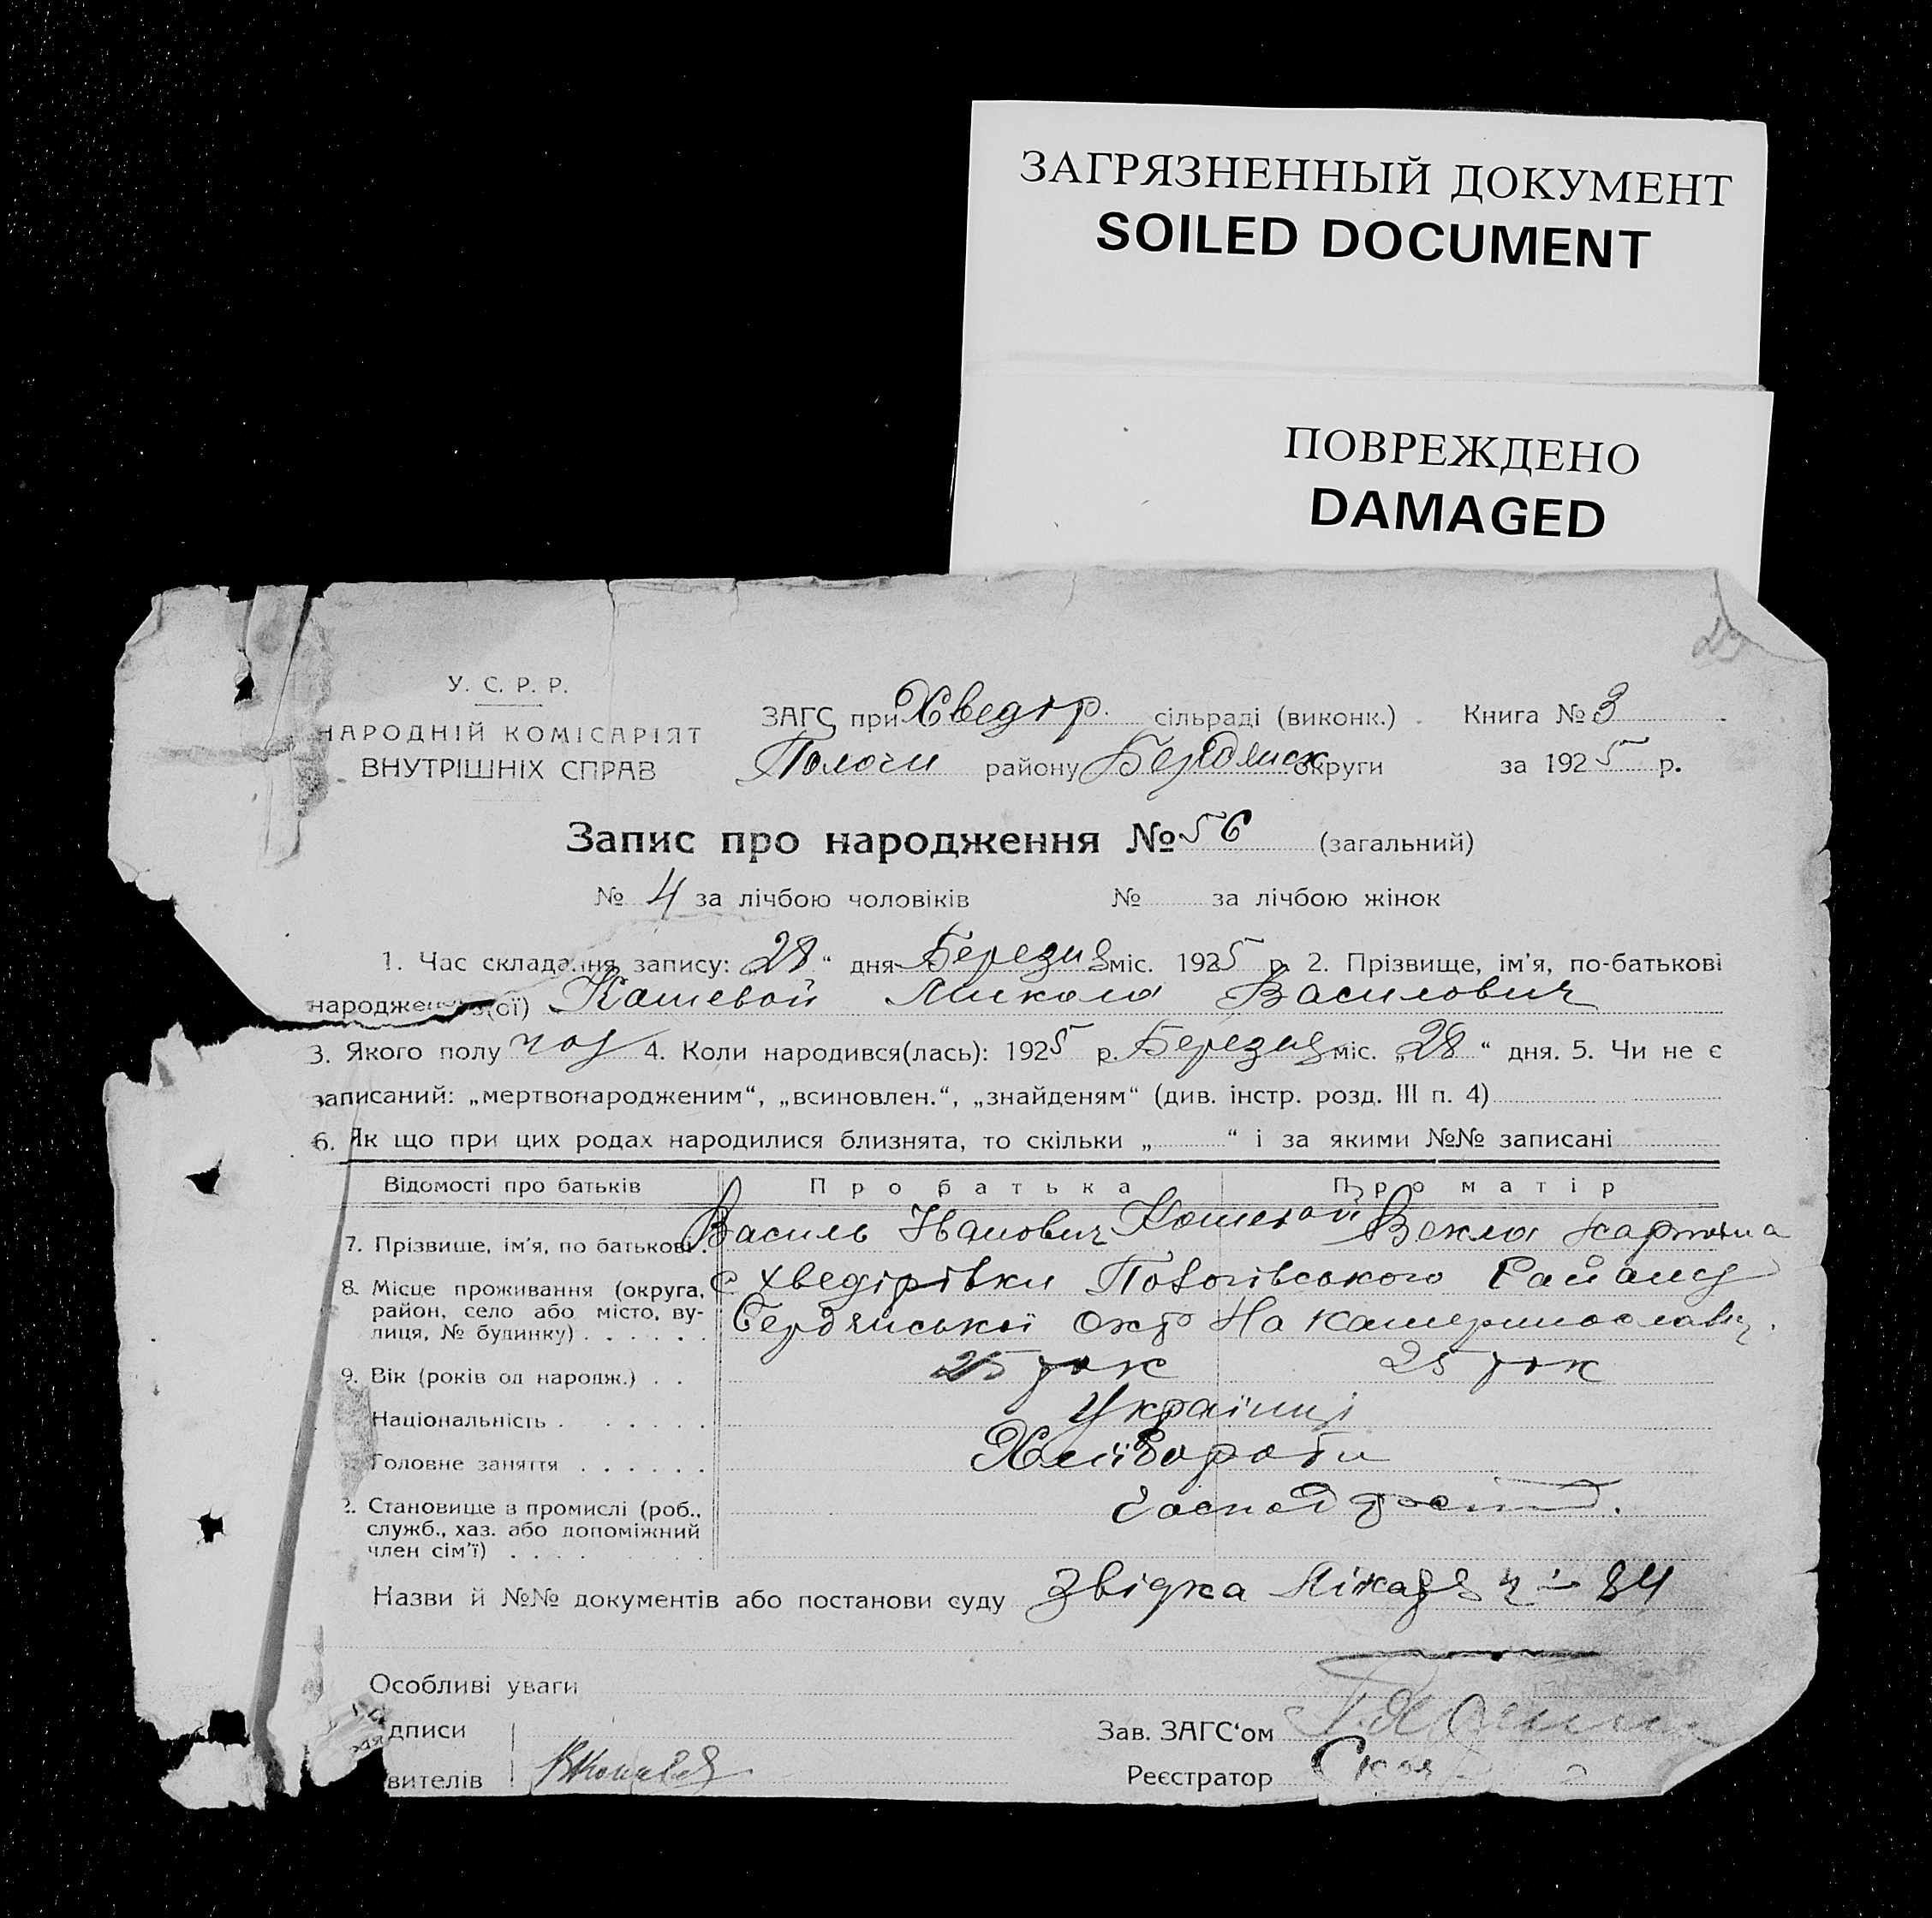 ЗАГРЯЗНЕННЫЙ ДОКУМЕНТ
SOILED DOCUMENT
ПОВРЕЖДЕНО
DAMAGED
У. С. Р. Р.
НАРОДНІЙ КОМІСАРІЯТ
ВНУТРІШНІХ СПРАВ
ЗАГС при Хведор. сільраді (виконк.)
Пологи району Бердянск округи
Книга № 3
за 1925 р.
Запис про народження № 56 (загальний)
№ 4 за лічбою чоловіків № за лічбою жінок
1. Час складання запису: „28“ дня Березня міс. 1925 р. 2. Прізвище, ім'я, по-батькові
народженого(ої) Кошевой Микола Василович
3. Якого полу чол 4. Коли народився(лась): 1925 р. Березня міс. „28“ дня. 5. Чи не є
записаний: „мертвонародженим“, „всиновлен.“, „знайденям“ (див. інстр. розд. III п. 4)
6. Як що при цих родах народилися близнята, то скільки „ “ і за якими №№ записані
Відомості про батьків Про батька Про матір
7. Прізвише, ім'я, по батькові . Василь Іванович Кошевой Векла
8. Місце проживання (округа, район, село або місто, вулиця, № будинку) . . . . . . с Хведорівки Пологівського Району
Бердянської окр На
9. Вік (років од народж.) . . 25 рок 25 рок
Національність . . . . . . Українці
Головне заняття . . . . . . Хлібороби
2. Становище в промислі (роб., служб., хаз. або допоміжний член сім'ї) . . . .
Назви й №№ документів або постанови суду Звідка Лікаря ч 84
Особливі уваги
дписи
вителів
Зав. ЗАГС'ом
Реєстратор